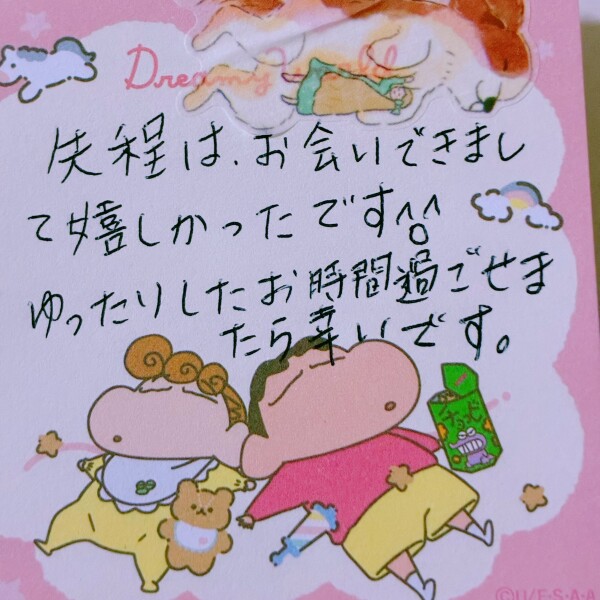 Dreamy World
先程は、お会いできまし
て嬉しかったです^^
ゆったりしたお時間過ごせま
たら幸いです。
チョコビ
©U/F・S・A・A